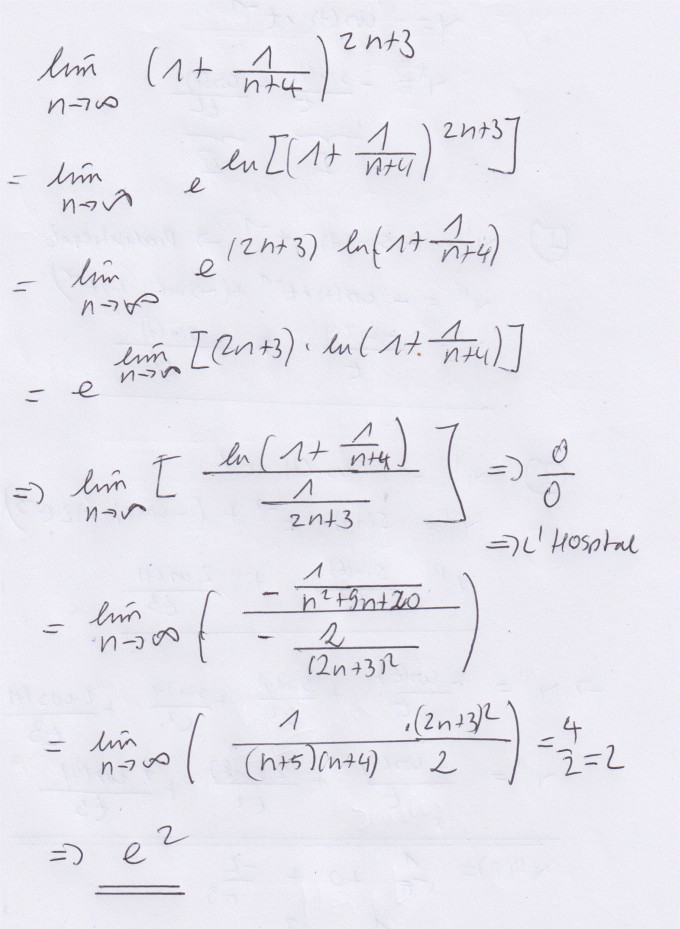 lim n→∞ (1 + 1/(n+4))^(2n+3)
= lim n→∞ e^(ln[(1 + 1/(n+4))^(2n+3)])
= lim n→∞ e^((2n+3) ln(1 + 1/(n+4)))
= e^(lim n→∞ [(2n+3) · ln(1 + 1/(n+4))])
=> lim n→∞ [ ln(1 + 1/(n+4)) / (1/(2n+3)) ] => 0/0
=> L'Hospital
= lim n→∞ ( (- 1/(n²+9n+20)) / (- 2/(2n+3)²) )
= lim n→∞ ( 1/((n+5)(n+4)) · (2n+3)²/2 ) = 4/2 = 2
=> e²